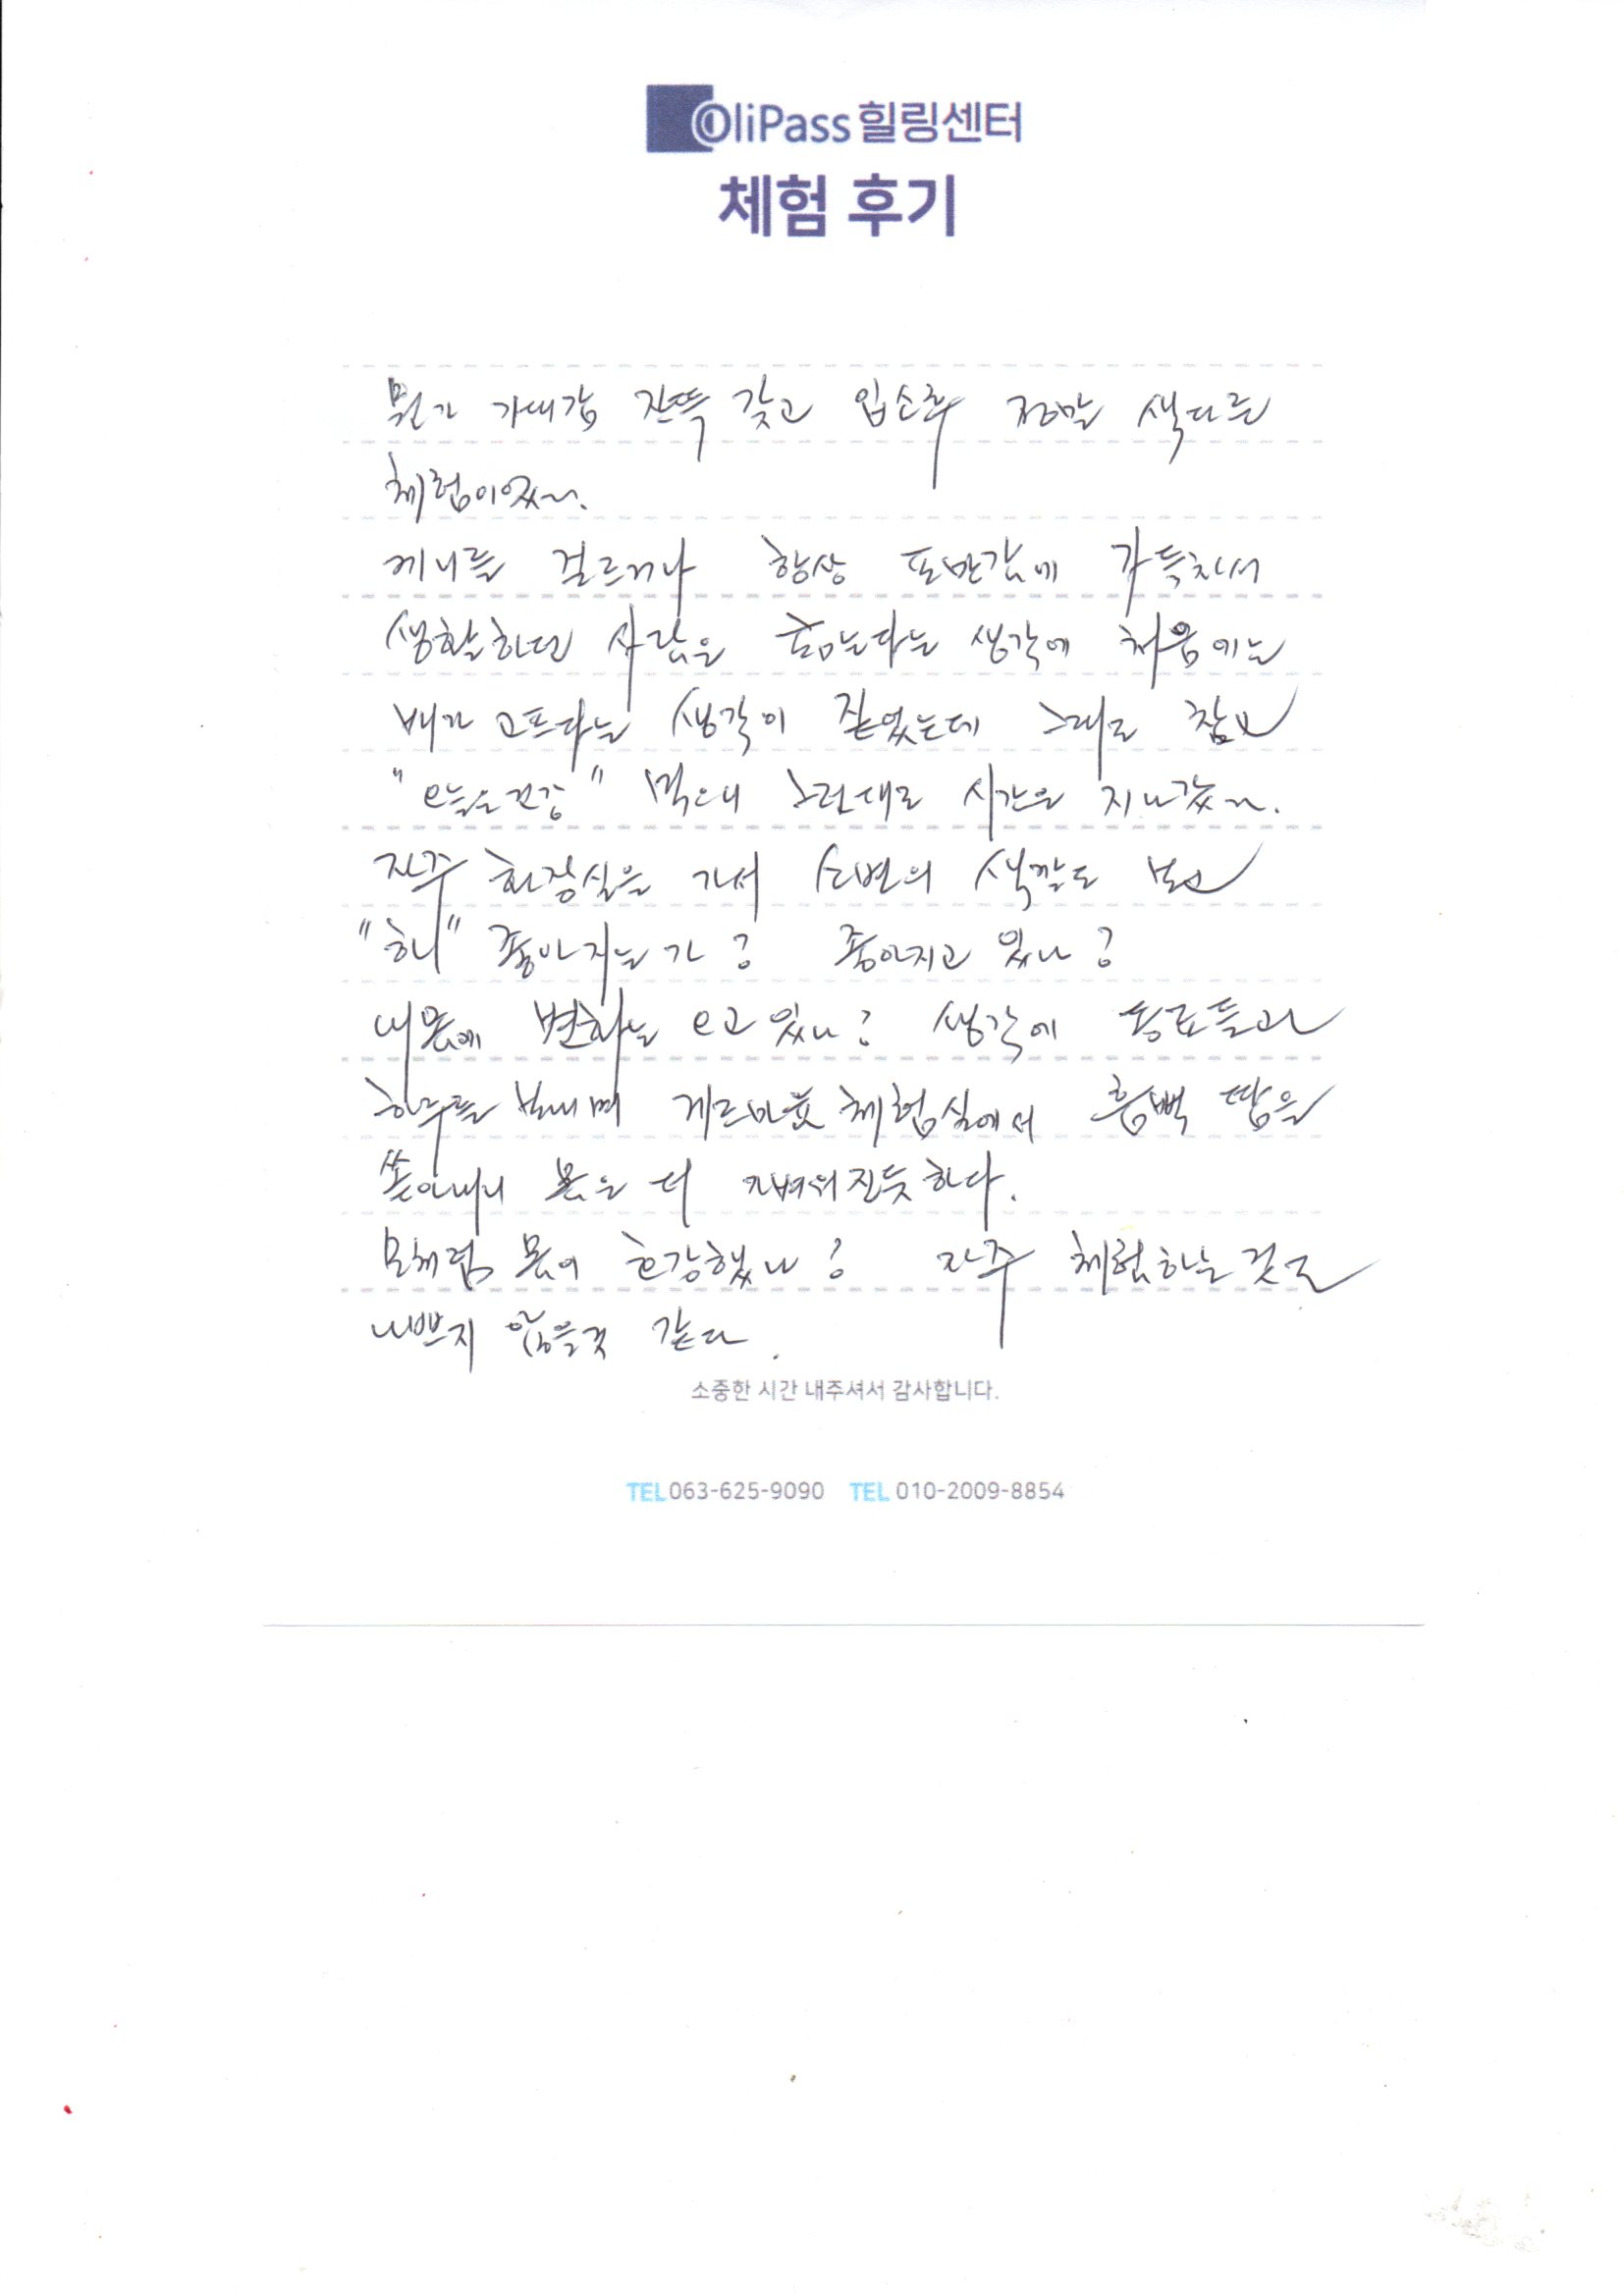 OliPass 힐링센터
체험 후기
뭔가 기대감 잔뜩 갖고 입소후 정말 색다른
체험이었다.
끼니를 걸르거나 항상 포만감에 가득차서
생활하던 사람은 생각에 처음에는
배가 고프다는 생각이 짙었는데 그대로 참고
"오늘은건강" 먹으니 그런대로 시간은 지나갔다.
자주 화장실을 가서 소변의 색깔도 보고
"혹시" 좋아지는가? 좋아지고 있나?
내몸에 변화는 오고 있나? 생각에 동료들과
하루를 보내며 게르마늄 체험실에서 흠뻑 땀을
쏟아내니 몸은 더 가벼워진듯하다.
모처럼 몸이 호강했나? 자주 체험하는 것도
나쁘지 않을것 같다.
소중한 시간 내주셔서 감사합니다.
TEL 063-625-9090 TEL 010-2009-8854